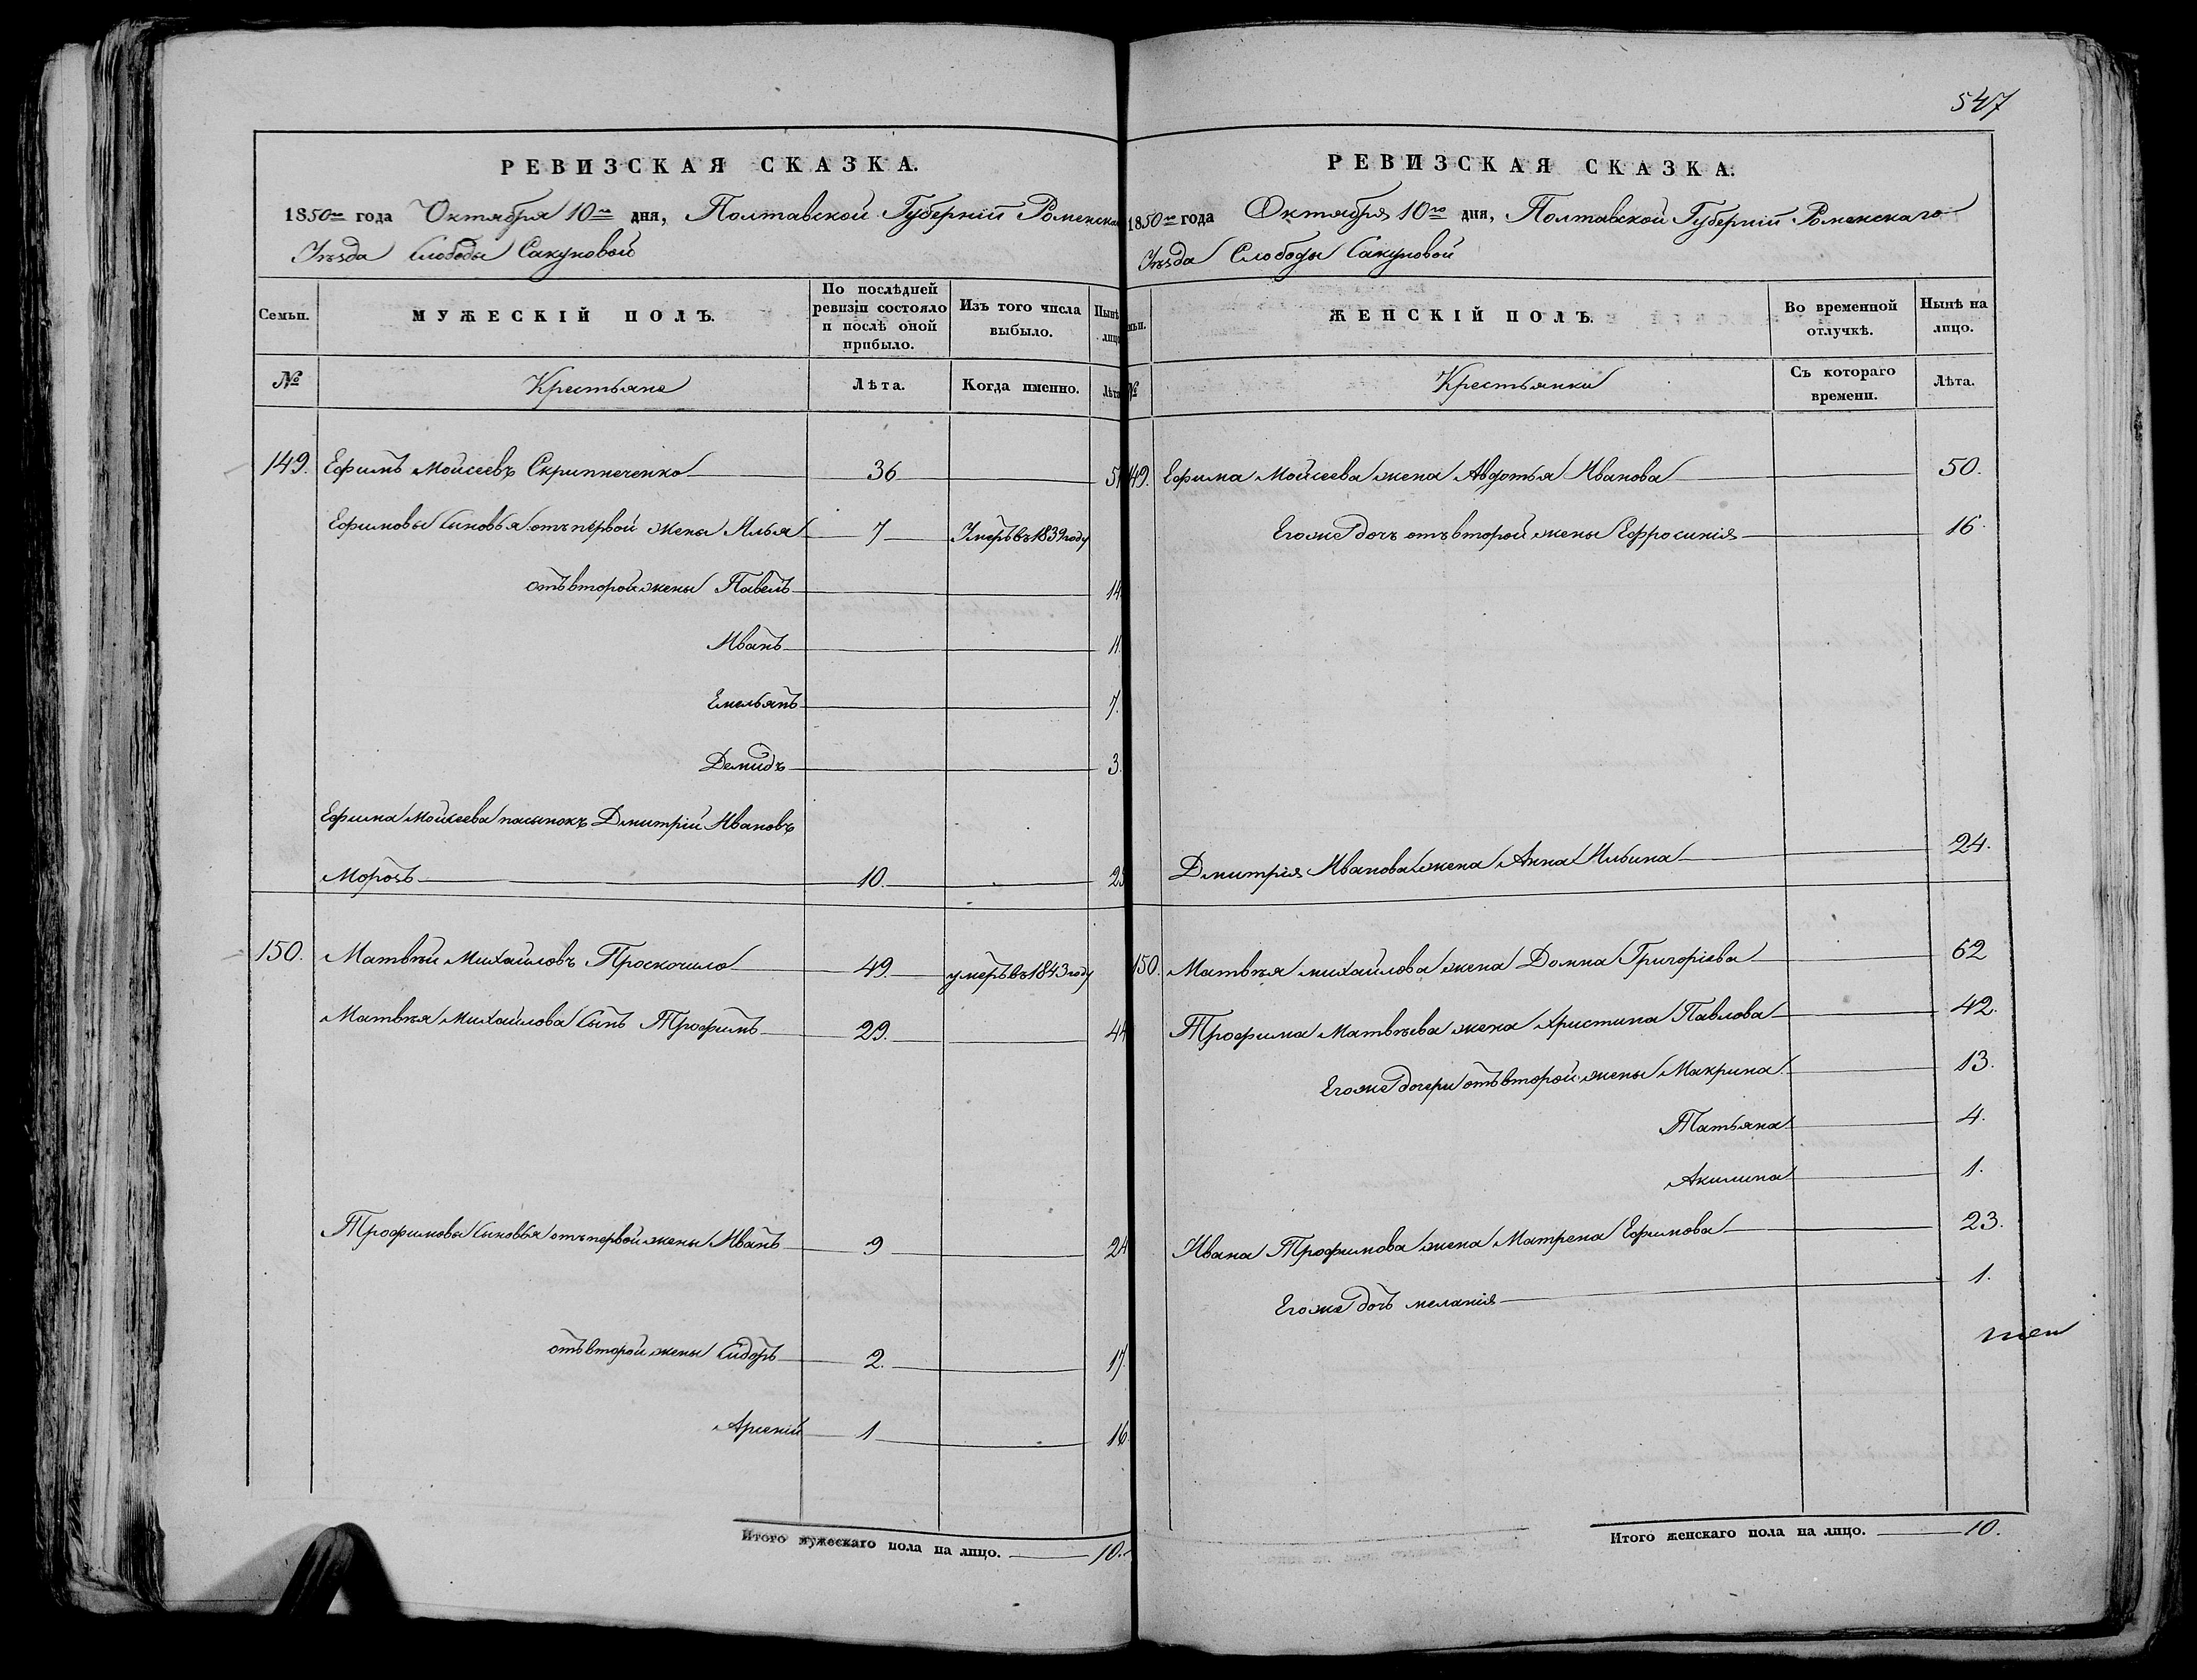 РЕВИЗСКАЯ СКАЗКА.
1850го года Октября 10го дня, Полтавской Губерніи Роменска
Уѣзда Слободы Сакуновой
Семьи. МУЖЕСКІЙ ПОЛЪ. По послѣдней ревизіи состояло и послѣ оной прибыло. Изъ того числа выбыло. Нынѣ лицо
№ Крестьяне Лѣта. Когда именно. Лѣта
149. Ефимъ Моисеевъ Скрипнеченко 36 51
Ефимовы сыновья отъ первой жены Илья 7 Умеръ въ 1839 году
отъ второй жены Павелъ 14.
Иванъ 11.
Емельянъ 7.
Демидъ 3.
Ефима Моисеева пасынокъ Дмитрій Ивановъ
Морозъ 10. 25
150. Матвѣй Михайловъ Проскочило 49. умеръ въ 1843 году
Матвѣя Михайлова сынъ Трофимъ 29. 44
Трофимовы сыновья отъ первой жены Иванъ 9 24
отъ второй жены Сидоръ 2. 17.
Арсеній 1 16.
Итого мужескаго пола на лицо. 10.
547
РЕВИЗСКАЯ СКАЗКА.
1850го года Октября 10го дня, Полтавской Губерніи Роменскаго
Уѣзда Слободы Сакуновой
мьи. ЖЕНСКІЙ ПОЛЪ. Во временной отлучкѣ. Нынѣ на лицо.
№ Крестьянки Съ котораго времени. Лѣта.
149. Ефима Моисеева жена Авдотья Иванова 50.
Его же дочь отъ второй жены Ефросинія 16.
Дмитрія Иванова жена Анна Ильина 24.
150. Матвѣя михайлова жена Домна Григоріева 62
Трофима Матвѣева жена Христина Павлова 42.
Его же дочери отъ второй жены Макрина 13.
Татьяна 4.
Акилина 1.
Ивана Трофимова жена Матрена Ефимова 23.
Его же дочь меланія 1.
Итого женскаго пола на лицо. 10.